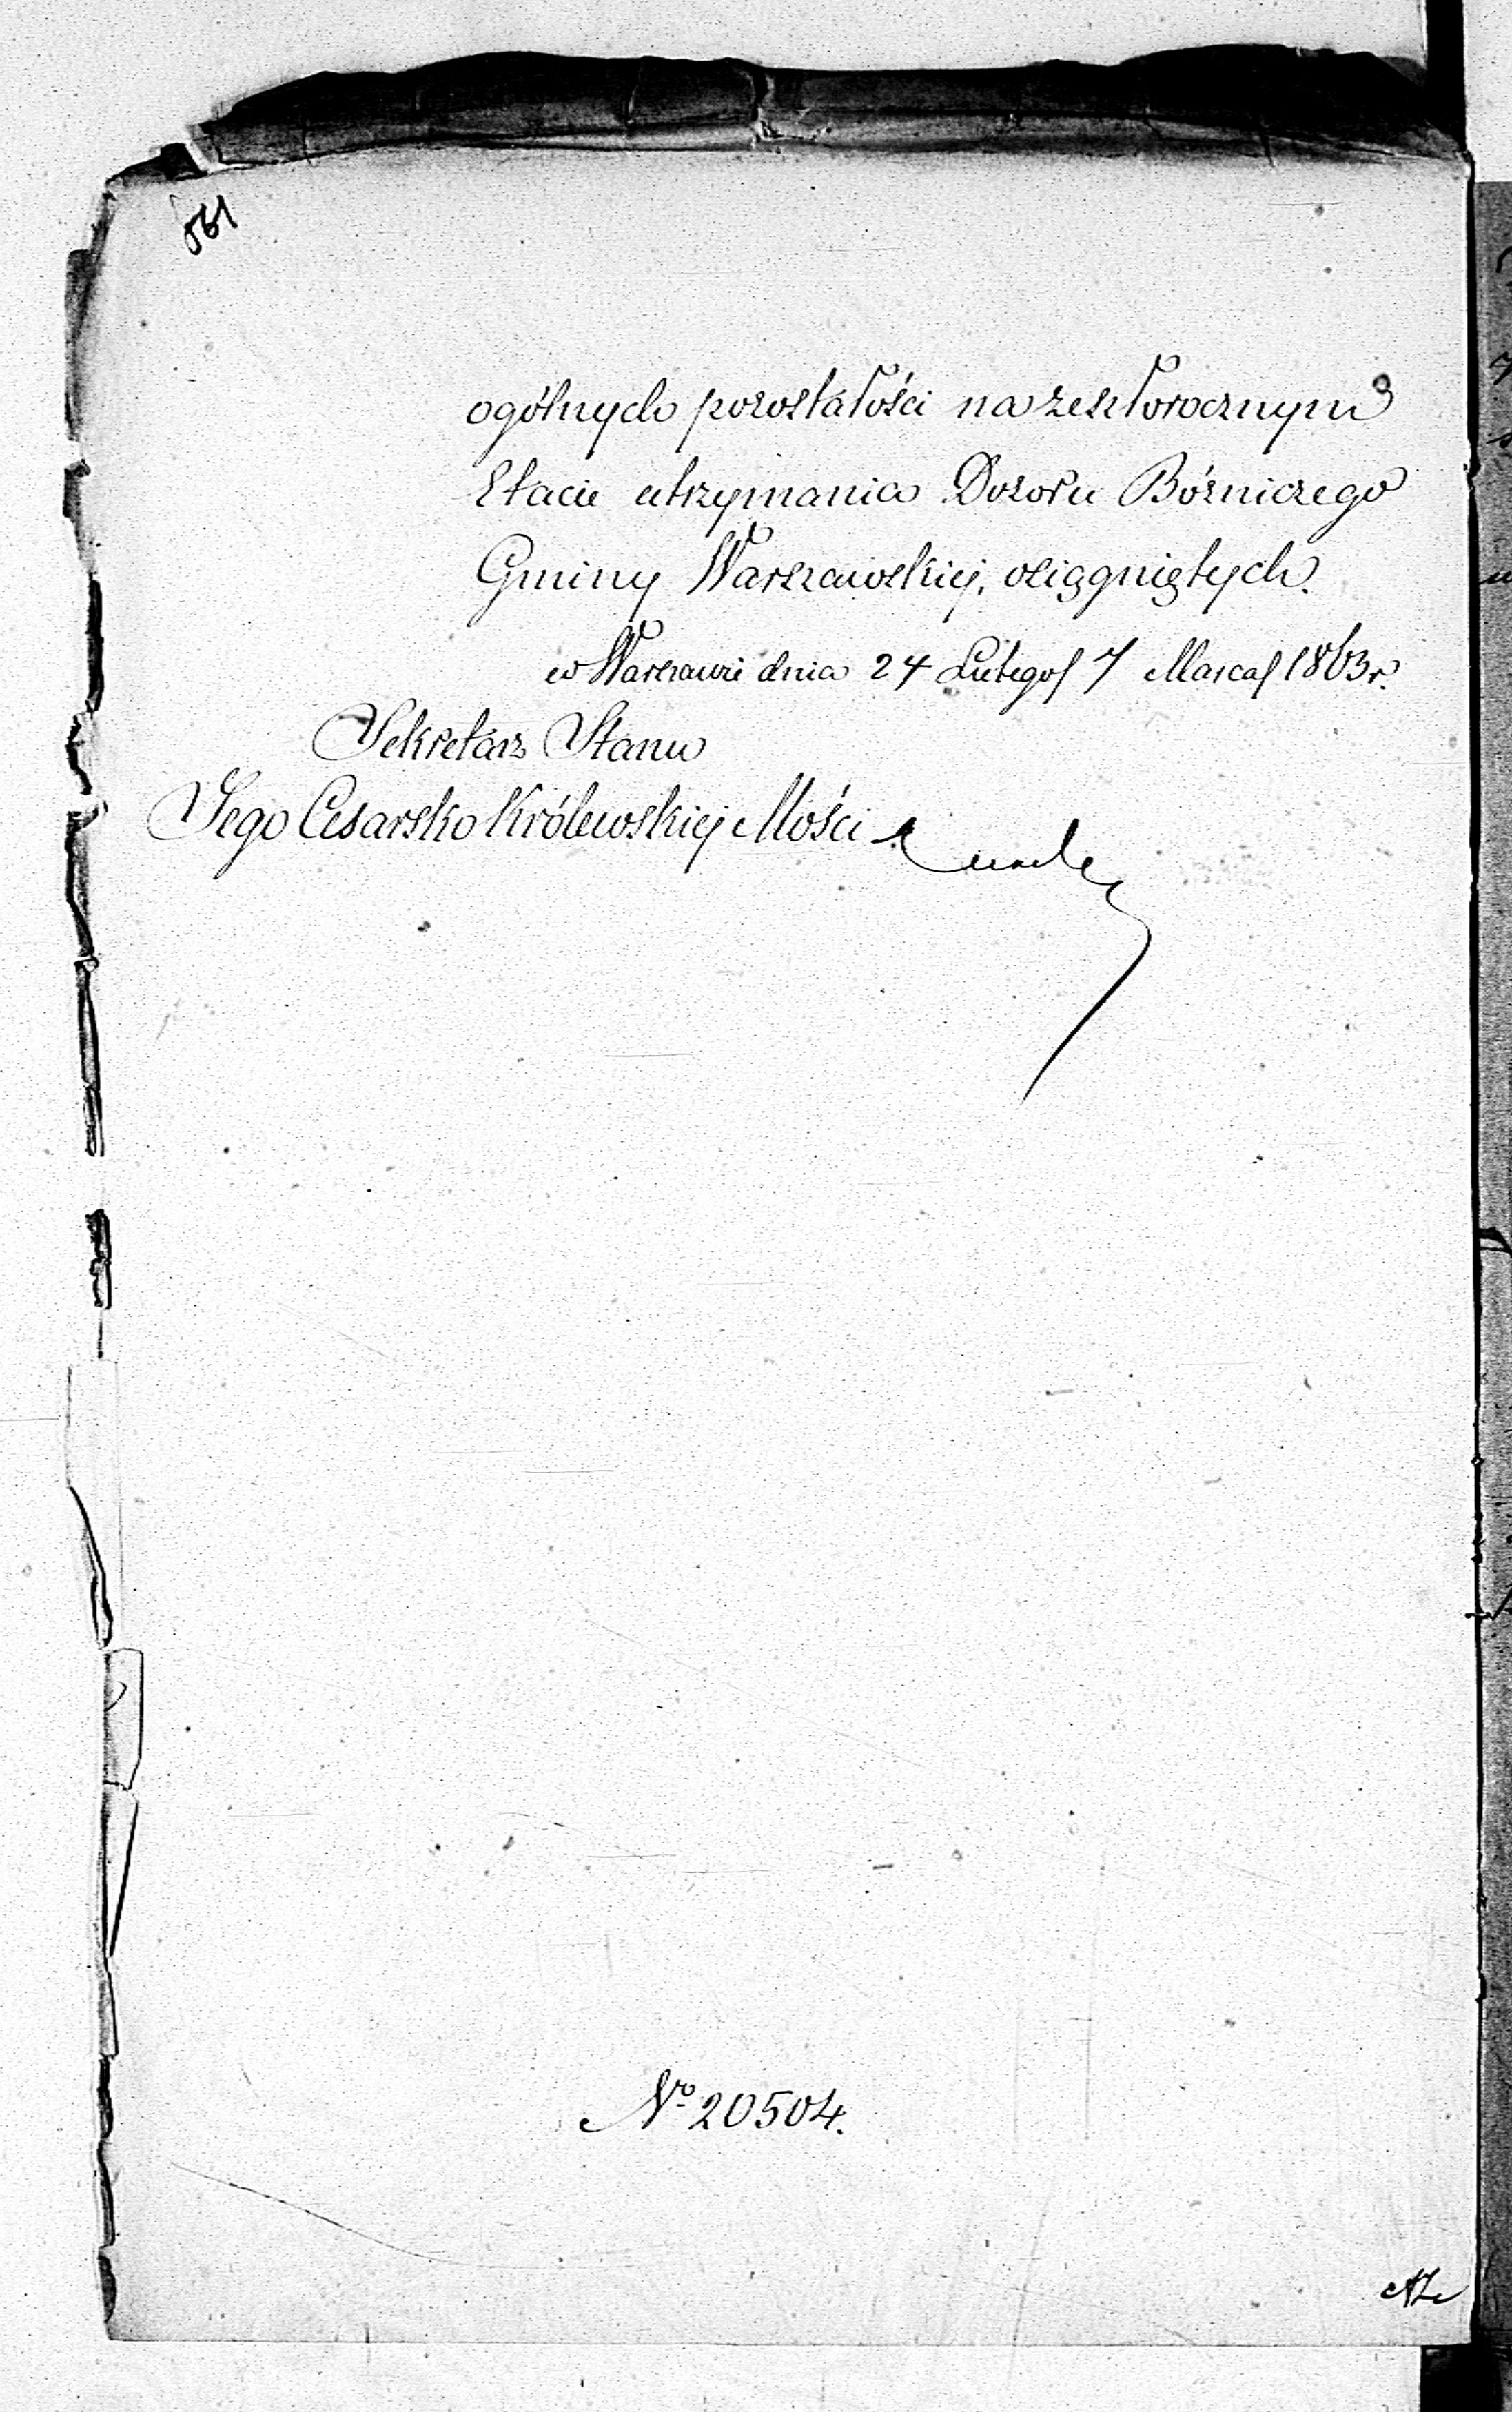 561
ogólnych pozostałości na zeszłorocznym
Etacie utrzymania Dozoru Bóżniczego
Gminy Warszawskiej, osiągniętych.
w Warszawie dnia 24 Lutego/ 7 Marca/ 1863 r.
Sekretarz Stanu
Jego Cesarsko Królewskiej Mości
No 20504.